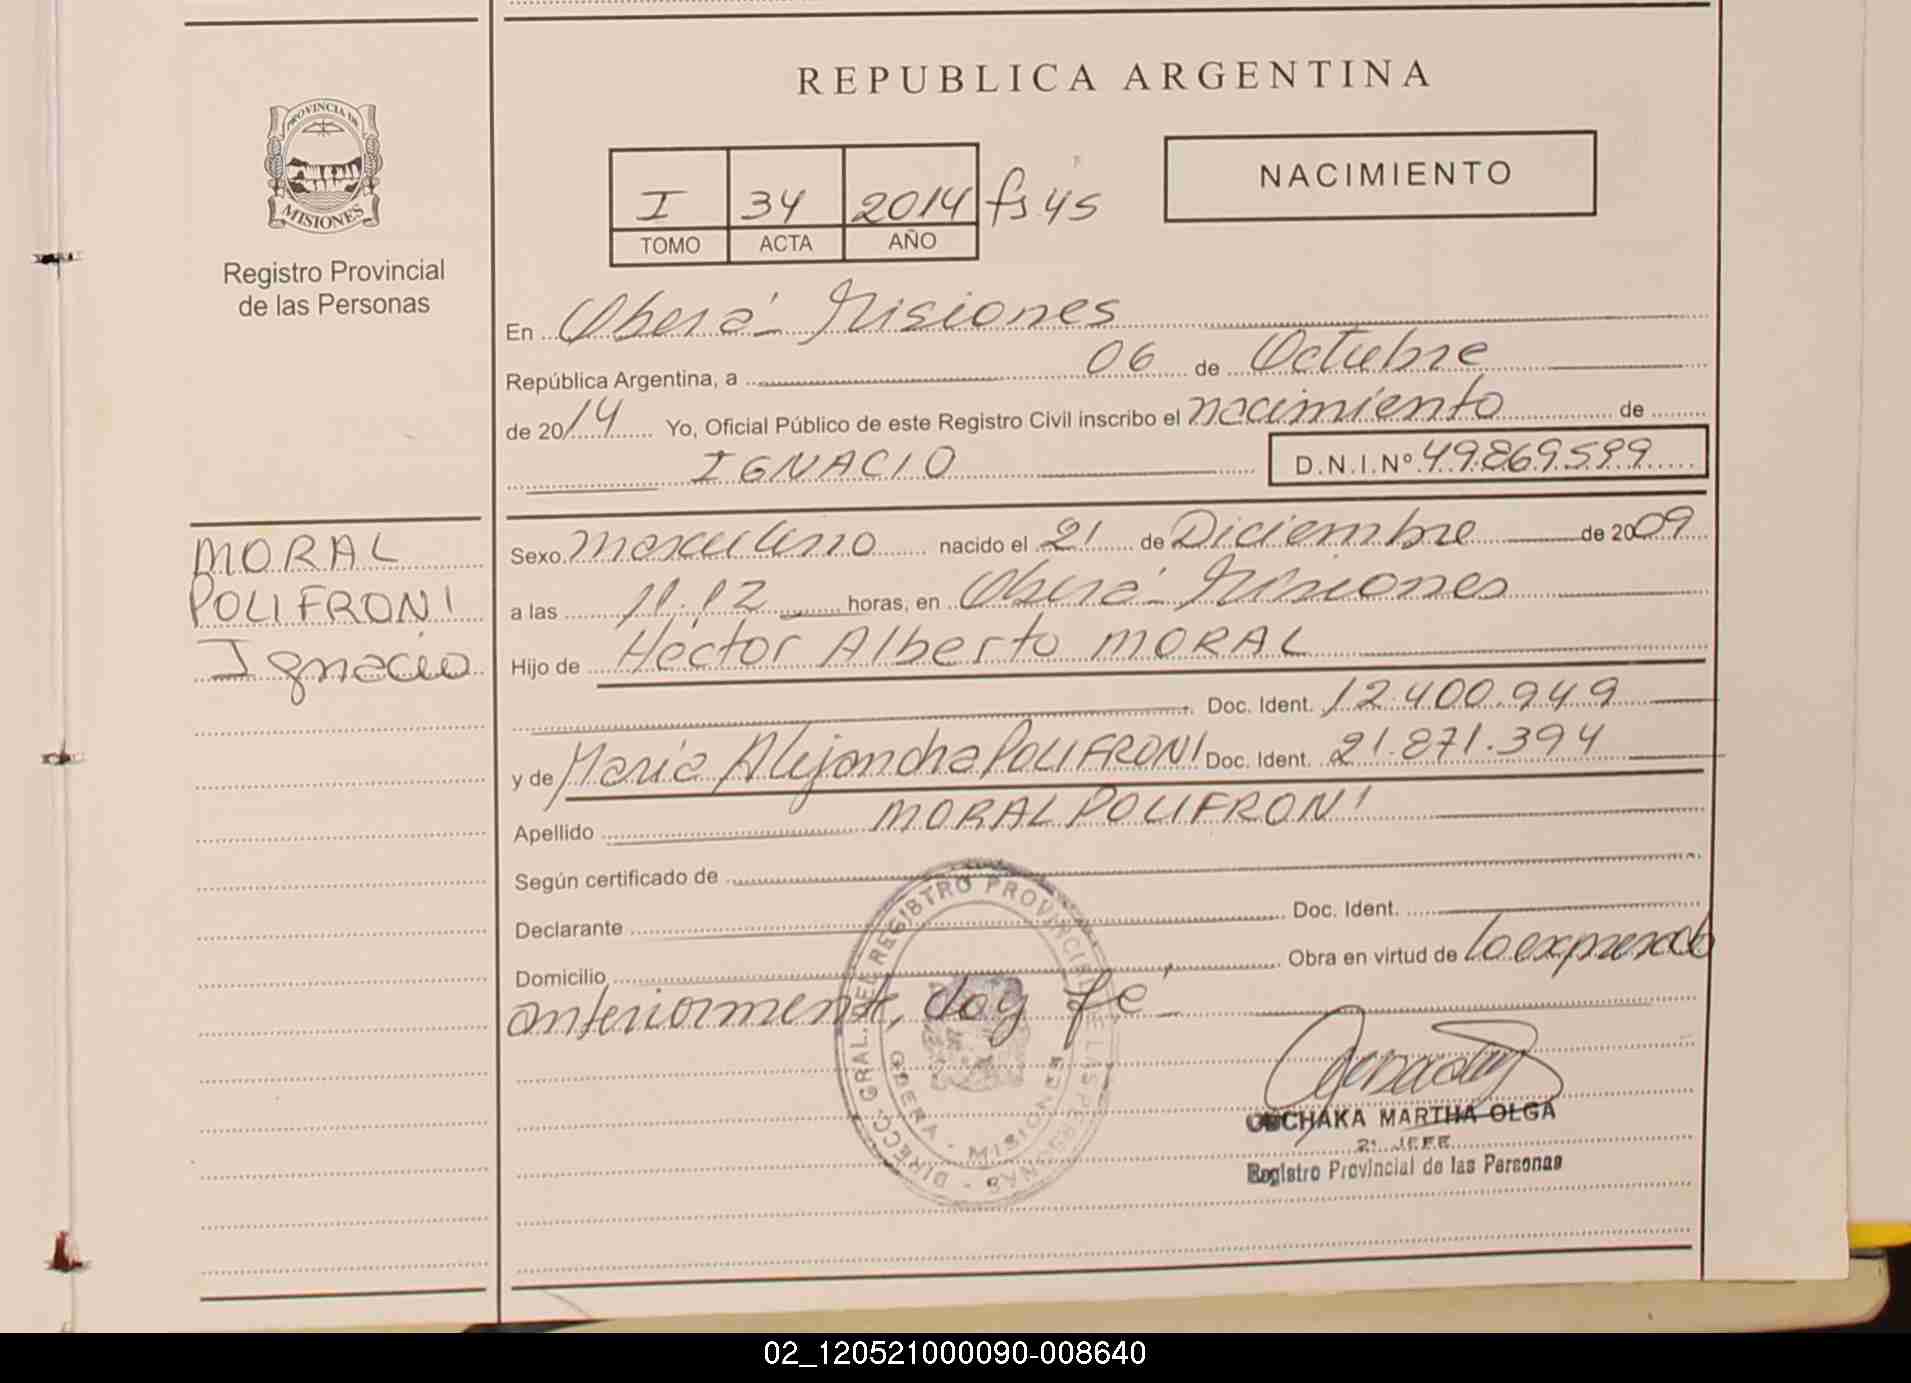 REPUBLICA ARGENTINA
PROVINCIA DE
MISIONES
Registro Provincial
de las Personas
NACIMIENTO
I 34 2014 fs 45
TOMO ACTA AÑO
En Oberá - Misiones
República Argentina, a 06 de Octubre
de 2014 Yo, Oficial Público de este Registro Civil inscribo el nacimiento de
IGNACIO D.N.I.Nº 49.869.599
MORAL
POLIFRONI
Ignacio
Sexo masculino nacido el 21 de Diciembre de 2009
a las 11.12 horas, en Oberá - Misiones
Hijo de Héctor Alberto MORAL
Doc. Ident. 12.400.949
y de María Alejandra POLIFRONI Doc. Ident. 21.871.394
Apellido MORAL POLIFRONI
Según certificado de
Declarante Doc. Ident.
Domicilio Obra en virtud de lo expresado
anteriormente, doy fé -
DIRECC. GRAL. DEL REGISTRO PROVINCIAL DE LAS PERSONAS
OBERA - MISIONES
MARTHA OLGA
JEFE
Registro Provincial de las Personas
02_120521000090-008640